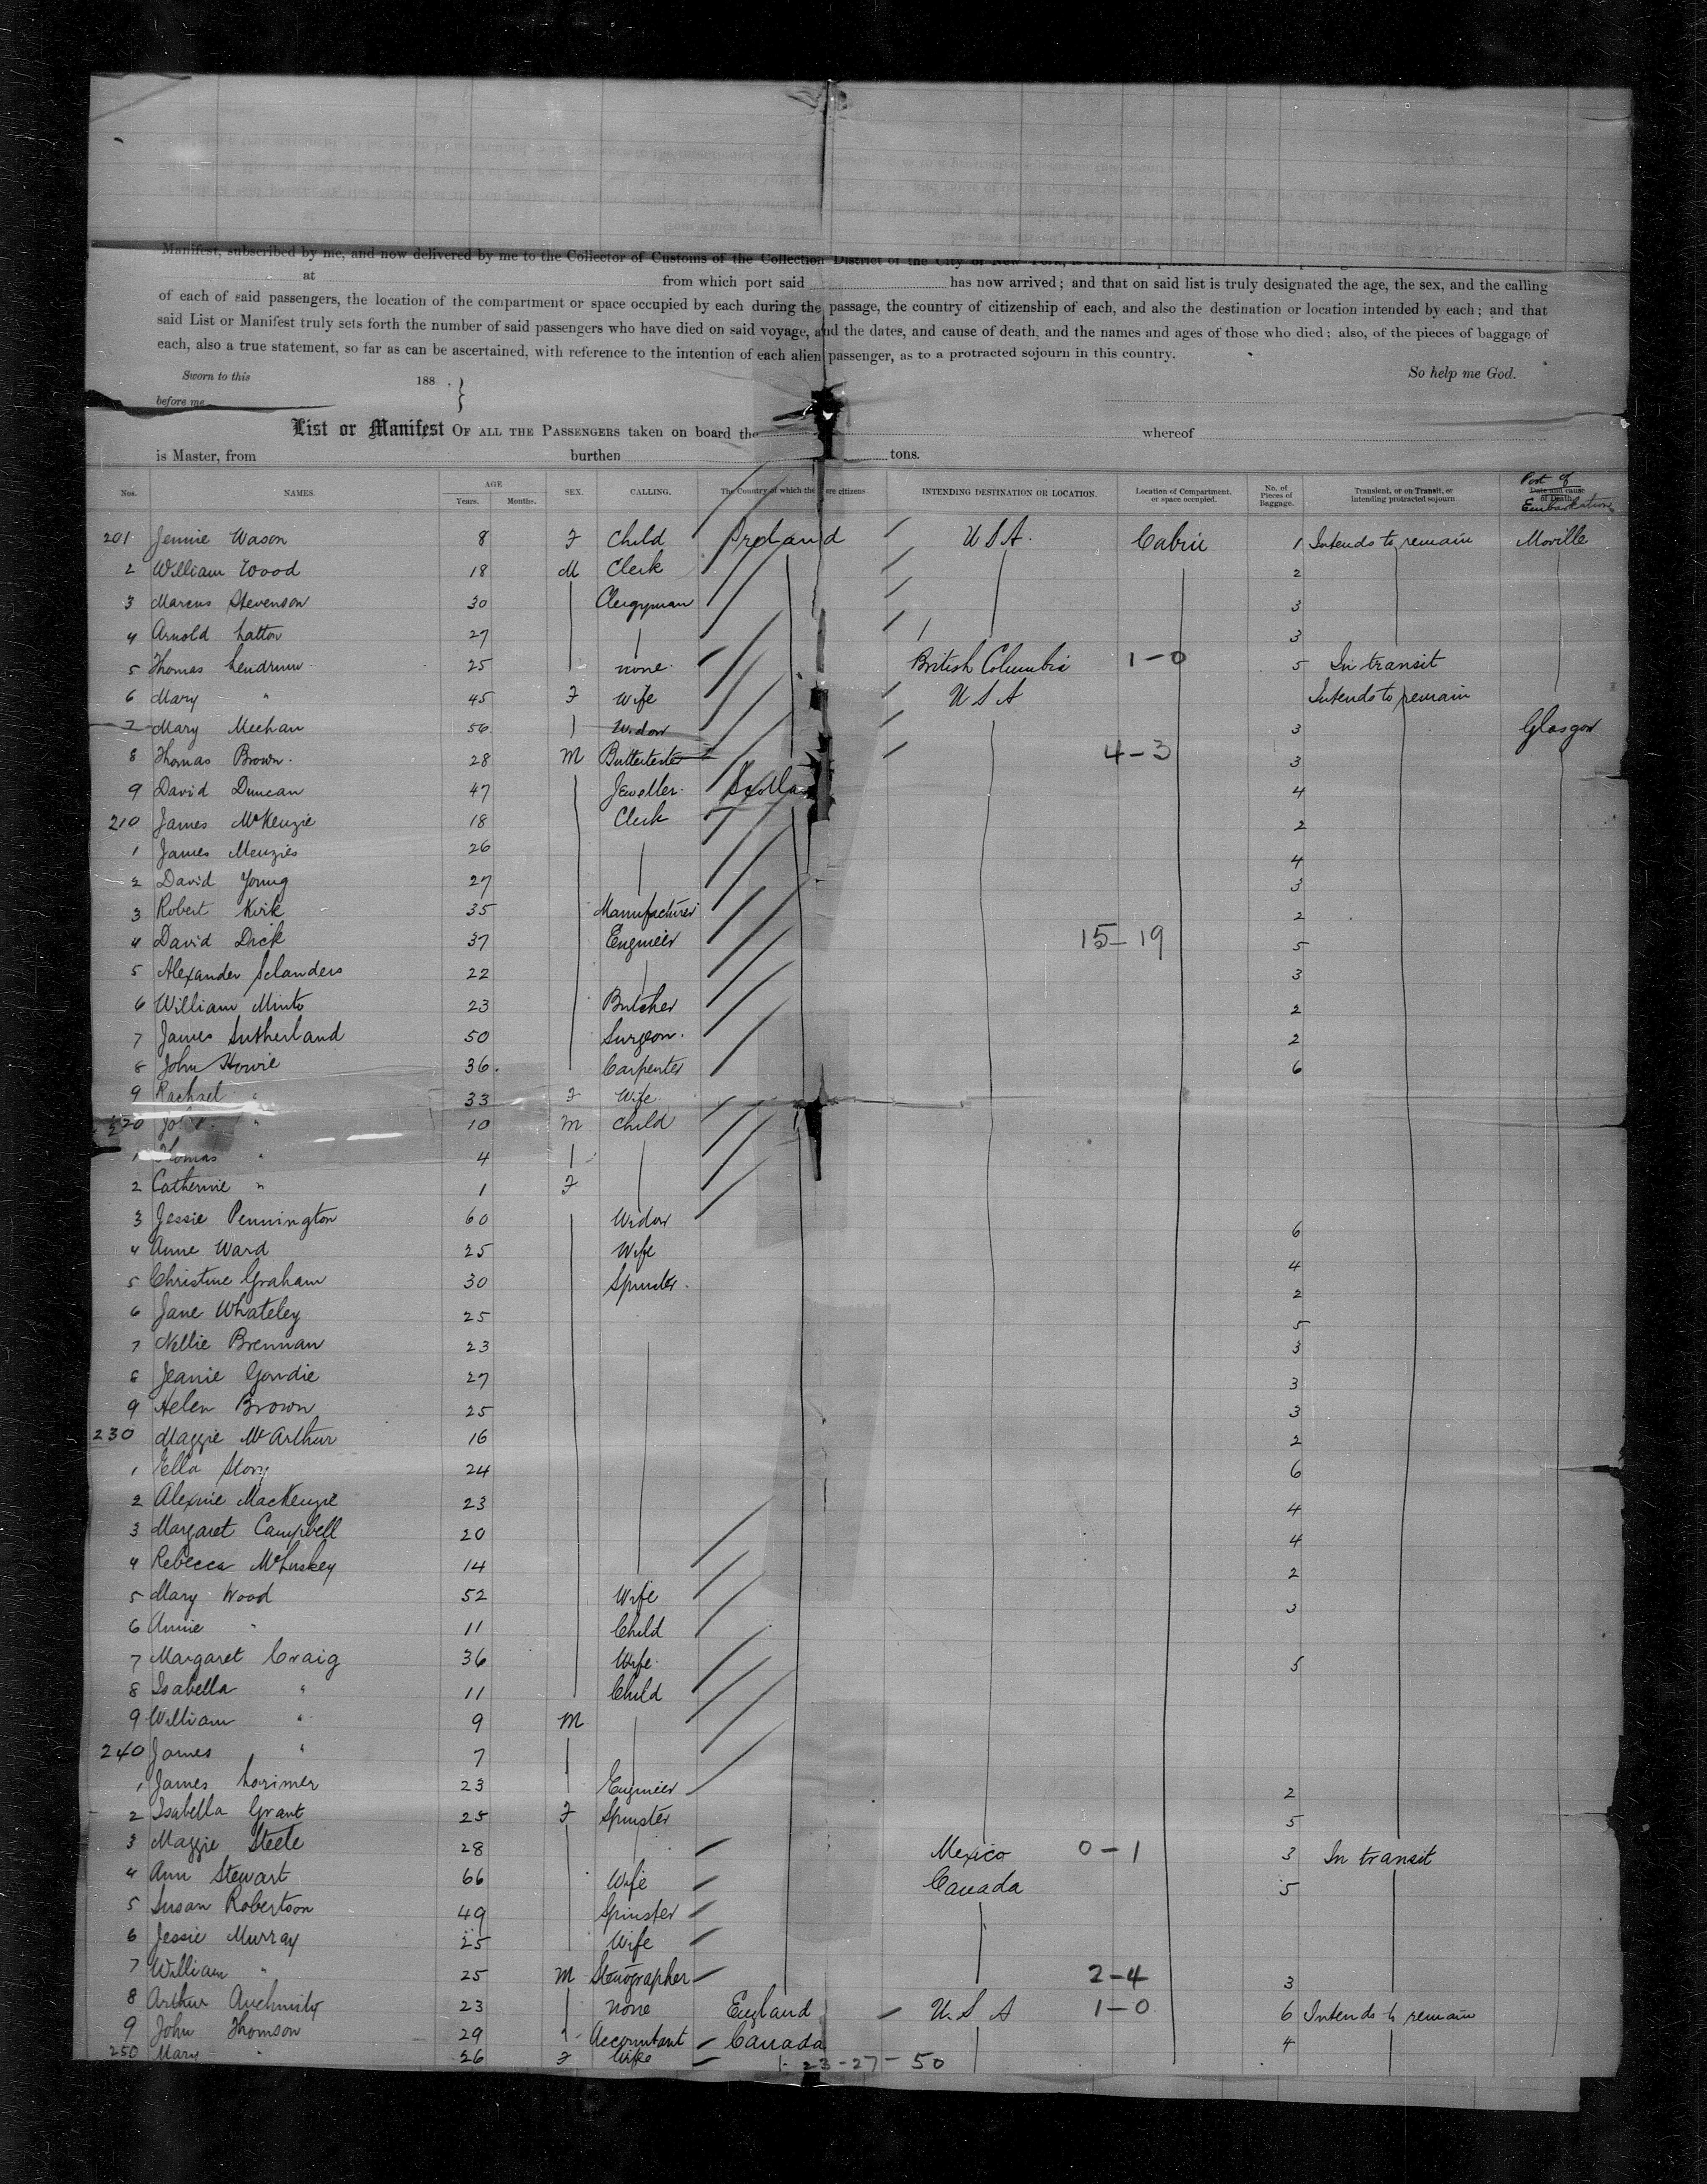 Manifest, subscribed by me, and now delivered by me to the Collector of Customs of the Collection District of the City of New York,
at from which port said has now arrived; and that on said list is truly designated the age, the sex, and the calling
of each of said passengers, the location of the compartment or space occupied by each during the passage, the country of citizenship of each, and also the destination or location intended by each; and that
said List or Manifest truly sets forth the number of said passengers who have died on said voyage, and the dates, and cause of death, and the names and ages of those who died; also, of the pieces of baggage of
each, also a true statement, so far as can be ascertained, with reference to the intention of each alien passenger, as to a protracted sojourn in this country.
Sworn to this 188 So help me God.
before me
List or Manifest OF ALL THE PASSENGERS taken on board the whereof
is Master, from burthen tons.
Nos. NAMES. AGE Years. Months. SEX. CALLING. The Country of which they are citizens. INTENDING DESTINATION OR LOCATION. Location of Compartment, or space occupied. No. of Pieces of Baggage. Transient, or on Transit, or intending protracted sojourn Date and cause of Death. Port of Embarkation
201 Jennie Wason 8 F Child Ireland U S A. Cabin 1 Intends to remain Moville
2 William Wood 18 M Clerk 2
3 Marcus Stevenson 30 Clergyman 3
4 Arnold Latton 27 3
5 Thomas Lendrum 25 none. British Columbia 1-0 5 In transit
6 Mary " 45 F Wife U S A Intends to remain
7 Mary Meehan 56 Widow 3 Glasgow
8 Thomas Brown. 28 M Buttertester 4-3 3
9 David Duncan 47 Jeweller. 4
210 James McKenzie 18 Clerk 2
1 James Menzies 26 4
2 David Young 27 3
3 Robert Kirk 35 Manufacturer 2
4 David Dick 37 Engineer 15-19 5
5 Alexander Selanders 22 3
6 William Minto 23 Butcher 2
7 James Sutherland 50 Surgeon. 2
8 John Howie 36. Carpenter 6
9 Rachael " 33 F Wife
220 " 10 M Child
1 Thomas " 4
2 Catherine " 1 F
3 Jessie Pennington 60 Widow 6
4 Anne Ward 25 Wife 4
5 Christine Graham 30 Spinster. 2
6 Jane Whateley 25 5
7 Nellie Brennan 23 3
8 Jeanie Goudie 27 3
9 Helen Brown 25 3
230 Maggie McArthur 16 2
1 Ella Story 24 6
2 Alexine MacKenzie 23 4
3 Margaret Campbell 20 4
4 Rebecca McLuskey 14 2
5 Mary Wood 52 Wife 3
6 Annie " 11 Child
7 Margaret Craig 36 Wife. 5
8 Isabella " 11 Child
9 William " 9 M
240 James " 7
1 James Lorimer 23 Engineer 2
2 Isabella Grant 25 F Spinster 5
3 Maggie Steele 28 Mexico 0-1 3 In transit
4 Ann Stewart 66 Wife Canada 5
5 Susan Robertson 49 Spinster
6 Jessie Murray 25 Wife
7 William " 25 M Stenographer 2-4 3
8 Arthur Auchmuty 23 none England U. S A 1-0 6 Intends to remain
9 John Thomson 29 Accountant Canada 4
250 Mary " 26 F Wife 23-27-50